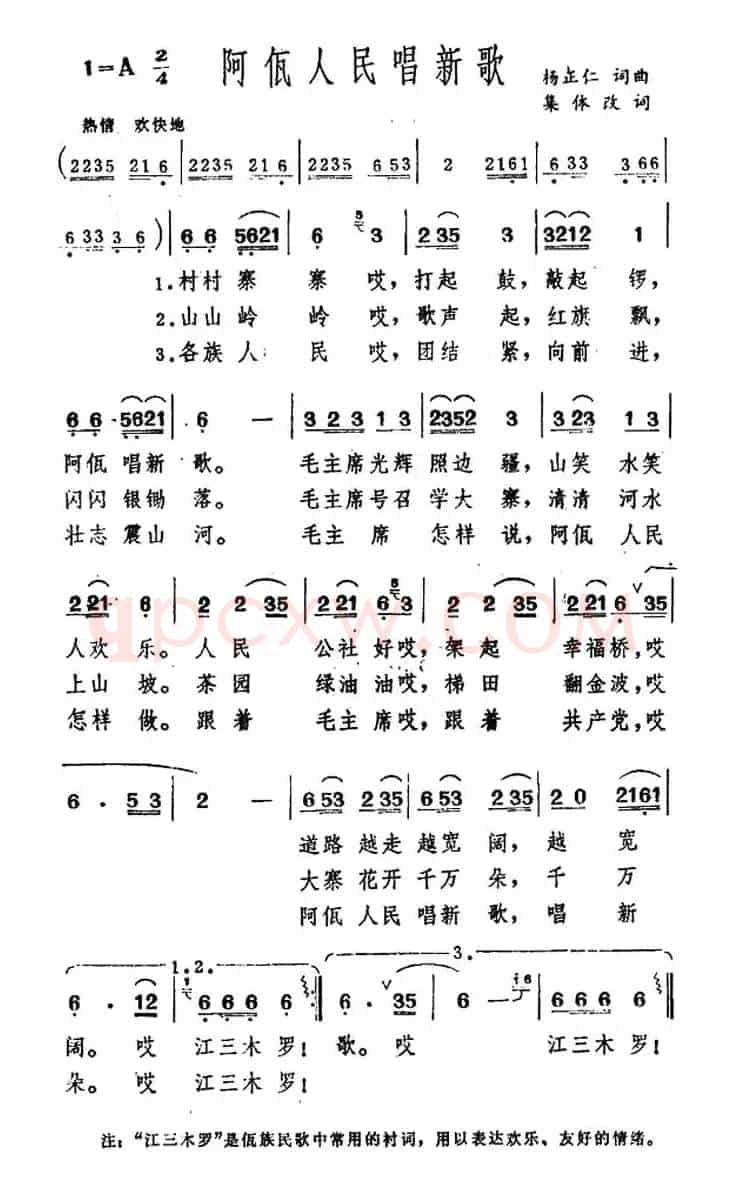 1=A 2/4 阿佤人民唱新歌 杨正仁 词曲
集体改词
热情 欢快地
(2235 216 2235 216 2235 653 2 2161 633 366
633 36) 66 5621 6 3 235 3 3212 1
1.村村寨寨哎，打起鼓，敲起锣，
2.山山岭岭哎，歌声起，红旗飘，
3.各族人民哎，团结紧，向前进，
66 5621 6 — 323 13 2352 3 323 13
阿佤唱新歌。毛主席光辉照边疆，山笑水笑
闪闪银锄落。毛主席号召学大寨，清清河水
壮志震山河。毛主席怎样说，阿佤人民
221 6 2 235 221 63 2 235 221 6 35
人欢乐。人民公社好哎，架起幸福桥，哎
上山坡。茶园绿油油哎，梯田翻金波，哎
怎样做。跟着毛主席哎，跟着共产党，哎
6 · 53 2 — 653 235 653 235 20 2161
道路越走越宽阔，越宽
大寨花开千万朵，千万
阿佤人民唱新歌，唱新
1.2. 3.
6 · 12 666 6 6 · 35 6 — 666 6
阔。哎江三木罗！歌。哎江三木罗！
朵。哎江三木罗！
注：“江三木罗”是佤族民歌中常用的衬词，用以表达欢乐、友好的情绪。
qpcxw.COM